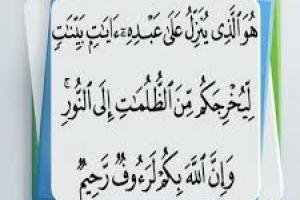 هُوَ ٱلَّذِى يُنَزِّلُ عَلَىٰ عَبْدِهِۦٓ ءَايَٰتٍۭ بَيِّنَٰتٍ
لِّيُخْرِجَكُم مِّنَ ٱلظُّلُمَٰتِ إِلَى ٱلنُّورِ ۚ
وَإِنَّ ٱللَّهَ بِكُمْ لَرَءُوفٌ رَّحِيمٌ